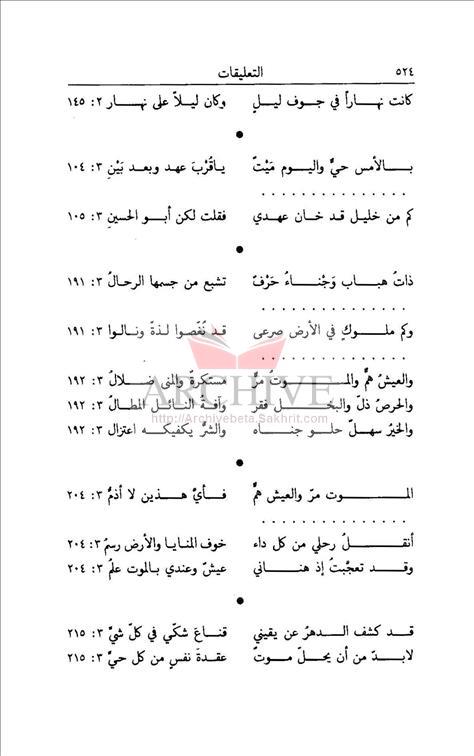 ٥٢٤ التعليقات
كانت نهاراً في جوف ليلٍ وكان ليلاً على نهار ٢: ١٤٥
●
بالأمس حيٌّ واليوم مَيْتٌ ياقُرْبَ عهد وبعد بَيْنِ ٣: ١٠٤
. . . . . . . . . . . . . . .
كم من خليل قد خان عهدي فقلت لكن أبو الحسينِ ٣: ١٠٥
●
ذاتُ هباب وَجْناءُ حَرْفٌ تشبع من جسمها الرحالُ ٣: ١٩١
. . . . . . . . . . . . . . .
وكم ملوكٍ في الأرض صرعى قد نُغّصوا لذةً ونالوا ٣: ١٩١
. . . . . . . . . . . . . . .
والعيشُ همٌّ والموتُ مرٌّ مستكرهٌ والمنى ضلالُ ٣: ١٩٢
والحرصُ ذلّ والبخل فقر وآفةُ النائل المطالُ ٣: ١٩٢
والخيرُ سهلٌ حلو جناه والشرُّ يكفيكه اعتزال ٣: ١٩٢
ARCHIVE
http://Archivebeta.Sakhrit.com
●
الموت مرّ والعيش همٌّ فأيُّ هذين لا أذمُّ ٣: ٢٠٤
. . . . . . . . . . . . . . .
أثقلُ رحلي من كل داء خوف المنايا والأرض رسمُ ٣: ٢٠٤
وقد تعجّبتُ إذ هناني عيشٌ وعندي بالموت علمُ ٣: ٢٠٤
●
قد كشف الدهرُ عن يقيني قناعَ شكّي في كلّ شيّ ٣: ٢١٥
لابدّ من أن يحلّ موتٌ عقدةَ نفسٍ من كل حيّ ٣: ٢١٥